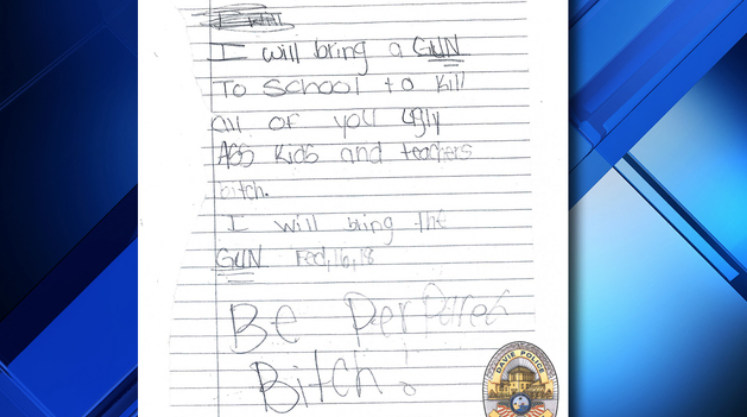 I will
I will bring a GUN
To School to kill
all of you ugly
Ass Kids and teachers
bitch.
I will bring the
GUN Feb,16,18
Be PerPared
Bitch!
DAVIE POLICE